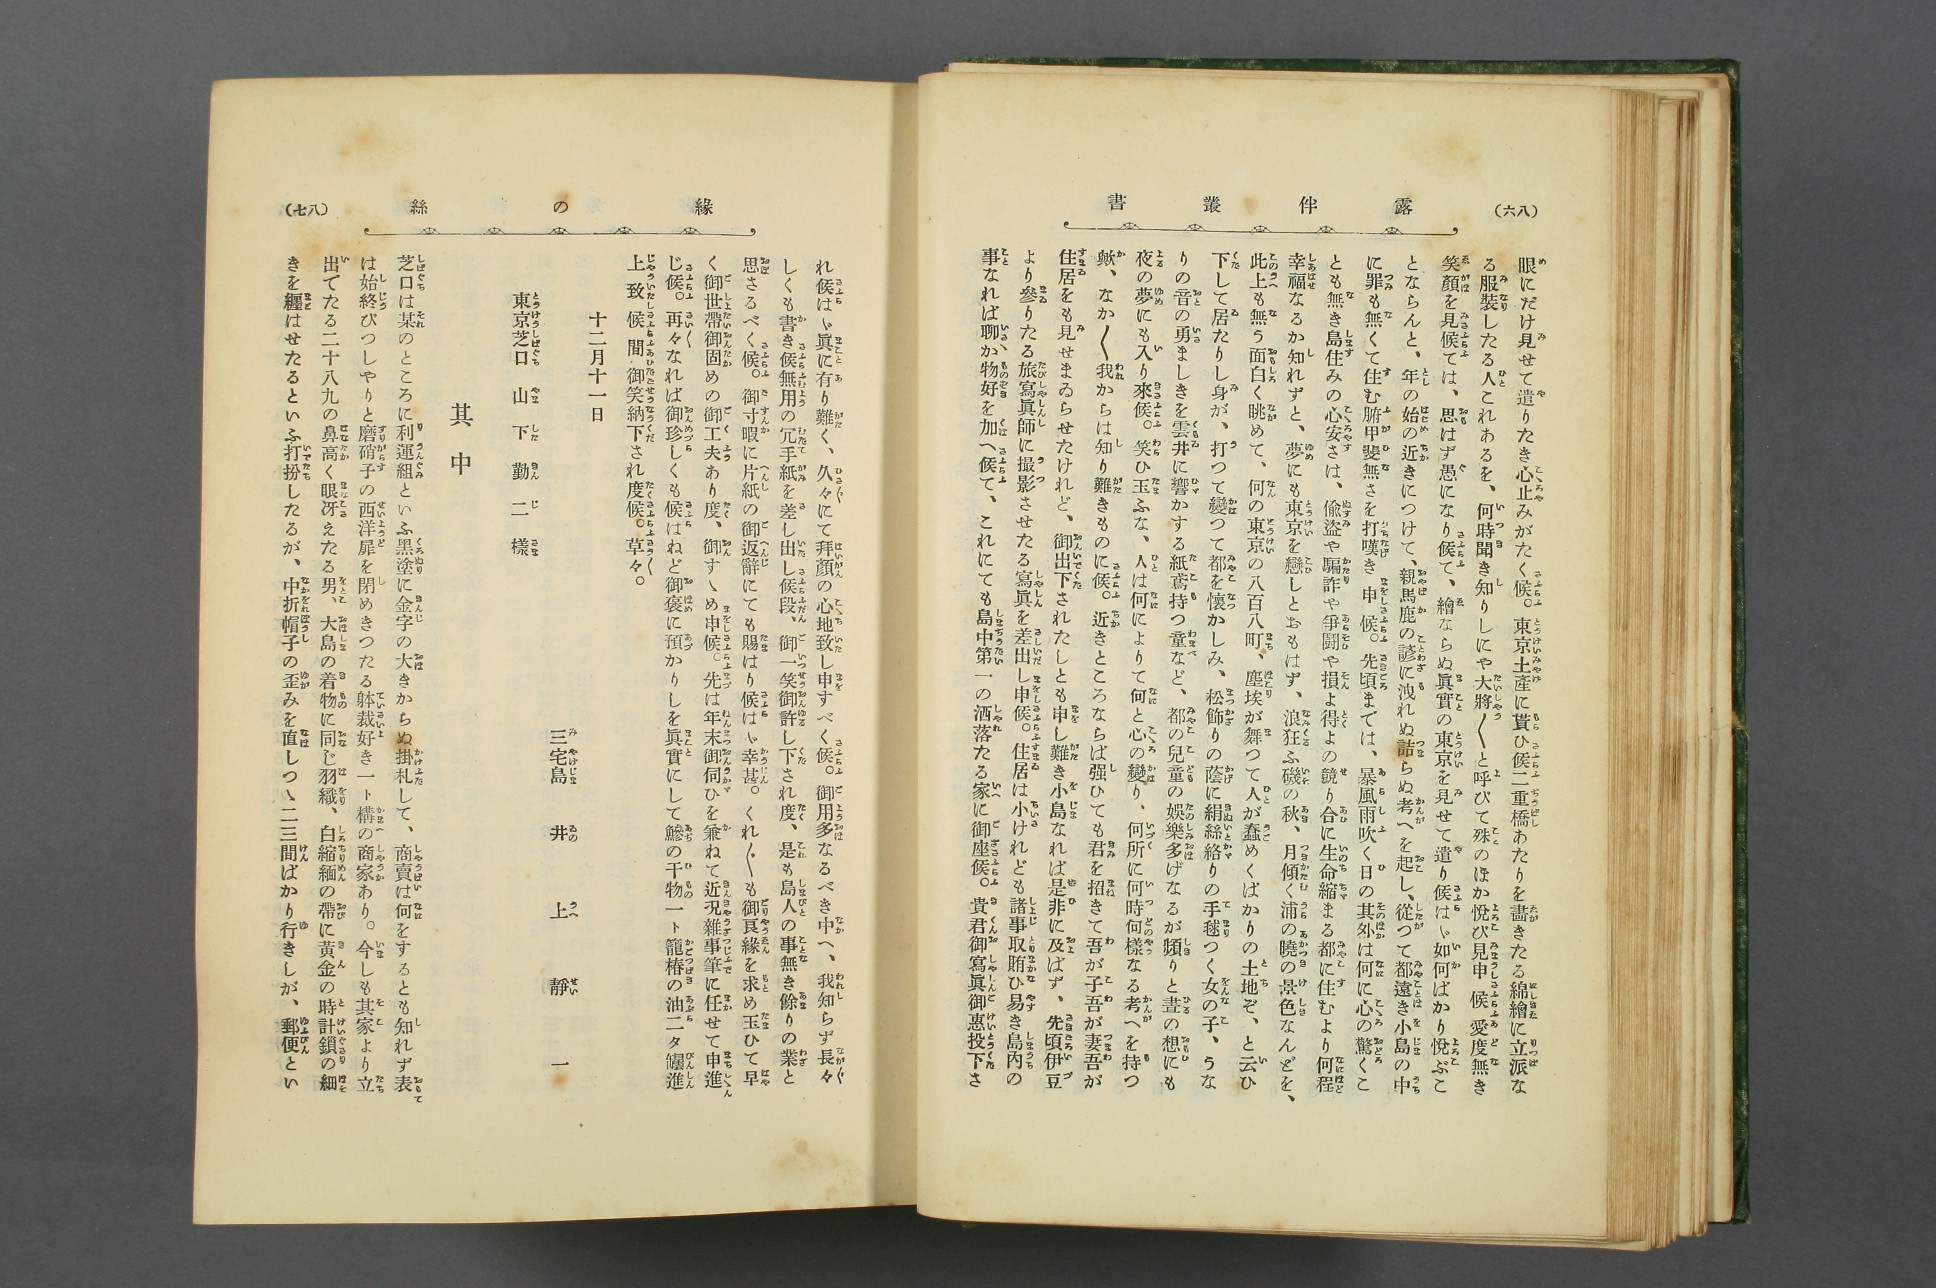 （八六）
露伴叢書
眼にだけ見せて遣りたき心止みがたく候。東京土產に貰ひ候二重橋あたりを畵きた る綿繪に立派な
る服裝したる人これあるを、何時聞き知りしにや大將〱と呼びて殊のほか悅び見申候愛度無き
笑顏を見候ては、思はず愚になり候て、繪ならぬ眞實の東京を見せて遣り候はゞ如何ばかり悅ぶこ
とならんと、年の始の近きにつけて、親馬鹿の諺に洩れぬ詰らぬ考へを起し、從つて都遠き小島の中
に罪も無くて住む腑甲斐無さを打嘆き申候。先頃までは、暴風雨吹く日の其外は何に心の驚くこ
とも無き島住みの心安さは、偸盜や騙詐や爭鬪や損よ得よの競り合に生命縮まる都に住むより何程
幸福なるか知れずと、夢にも東京を戀しとおもはず、浪狂ふ磯の秋、月傾く浦の曉の景色なんどを、
此上も無う面白く眺めて、何の東京の八百八町、塵埃が舞つて人が蠢めくばかりの土地ぞ、と云ひ
下して居たりし身が、打つて變つて都を懷かしみ、松飾りの蔭に絹絲絡りの手毬つく女の子、うな
りの音の勇ましきを雲井に響かする紙鳶持つ童など、都の兒童の娛樂多げなるが頻りと晝の想にも
夜の夢にも入り來候。笑ひ玉ふな、人は何によりて何と心の變り、何所に何時何樣なる考へを持つ
歟、なか〱我からは知り難きものに候。近きところならば强ひても君を招きて吾が子吾が妻吾が
住居をも見せまゐらせたけれど、御出下されたしとも申し難き小島なれば是非に及ばず、先頃伊豆
より參りたる旅寫眞師に撮影させたる寫眞を差出し申候。住居は小けれども諸事取賄ひ易き島內の
事なれば聊か物好を加へ候て、これにても島中第一の洒落たる家に御座候。貴君御寫眞御惠投下さ
緣の絲
（八七）
れ候はゞ眞に有り難く、久々にて拜顏の心地致し申すべく候。御用多なるべき中へ、我知らず長々
しくも書き候無用の冗手紙を差し出し候段、御一笑御許し下され度、是も島人の事無き餘りの業と
思さるべく候。御寸暇に片紙の御返辭にても賜はり候はゞ幸甚。くれ〲も御良緣を求め玉ひて早
く御世帶御固めの御工夫あり度、御すゝめ申候。先は年末御伺ひを兼ねて近况雜事筆に任せて申進
じ候。再々なれば御珍しくも候はねど御褒に預かりしを眞實にして鰺の干物一ト籠椿の油二タ罎進
上致候間御笑納下され度候。草々。
十二月十一日
三宅島　井上靜一
東京芝口　山下勤二樣
其中
芝口は某のところに利運組といふ黑塗に金字の大きからぬ掛札して、商賣は何をするとも知れず表
は始終ぴつしやりと磨硝子の西洋扉を閉めきつたる躰裁好き一ト構の商家あり。今しも其家より立
出でたる二十八九の鼻高く眼冴えたる男、大島の着物に同じ羽織、白縮緬の帶に黃金の時計鎖の細
きを纒はせたるといふ打扮したるが、中折帽子の歪みを直しつゝ二三間ばかり行きしが、郵便とい